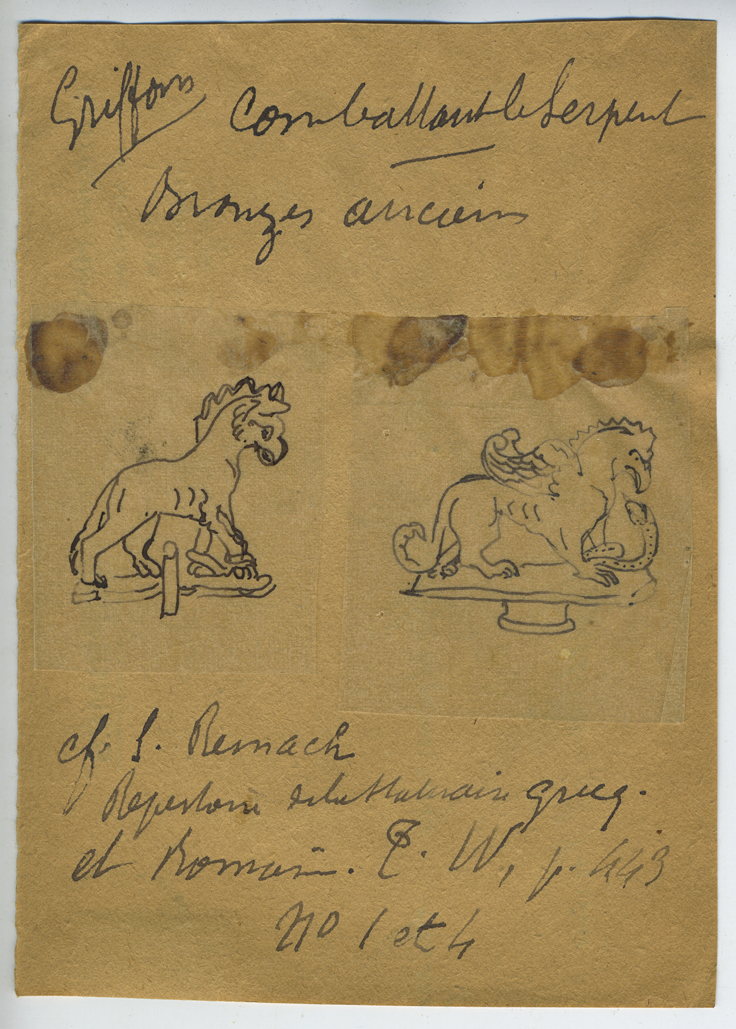 Griffons combattant le Serpent
Bronzes anciens
cf. S. Reinach
Repertoire de la Statuaire grecq.
et Romain. T. IV, p. 443
No 1 et 4